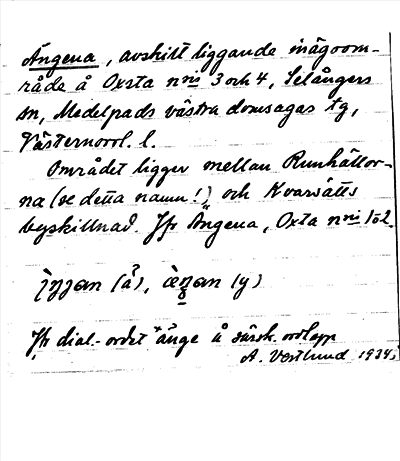 Ängena, avskilt liggande inägoom-
råde å Oxsta nris 3 och 4, Selångers
sn, Medelpads västra domsagas tg,
Västernorrl. l.
Området ligger mellan Runhällor-
na (se detta namn!), och Kvarsätts
byskillnad. Jfr Ängena, Oxta nris 1 o 2.
(å), (y)
Jfr dial.-ordet änge å särsk. ordlapp
A. Vestlund 1934.